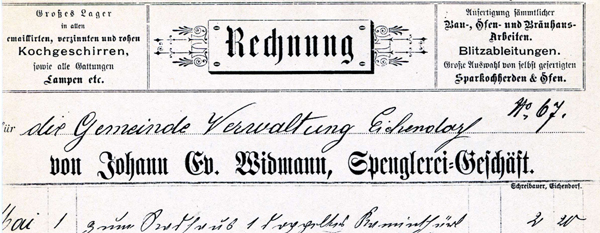 Großes Lager
in allen
emaillirten, verzinnten und rohen
Kochgeschirren,
sowie alle Gattungen
Lampen etc.
Rechnung
Anfertigung sämmtlicher
Bau-, Öfen- und Bräuhaus-
Arbeiten.
Blitzableitungen.
Große Auswahl von selbst gefertigten
Sparkochherden & Öfen.
No. 67.
für die Gemeinde Verwaltung Eichendorf
von Johann Ev. Widmann, Spenglerei-Geschäft.
Schreibauer, Eichendorf.
Mai 1 zum 1 doppeltes Kaminthürl 2 20